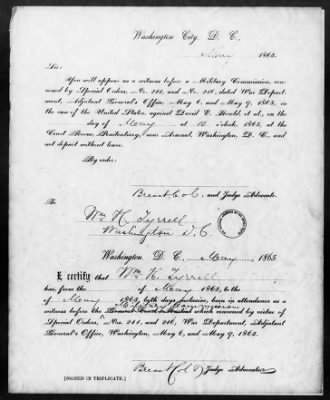 Washington City, D. C.
May 1865.
Sir:
You will appear as a witness before a Military Commission, con-
vened by Special Orders, No. 211, and No. 216, dated War Depart-
ment, Adjutant General's Office, May 6, and May 9, 1865, in
the case of the United States, against David E. Herold et al., on the
day of May at 10 o'clock, 1865, at the
Court Room, Penitentiary, near Arsenal, Washington, D. C., and
not depart without leave.
By order:
Brevet Col & and Judge Advocate.
To
Wm H. Tyrrell
Washington D. C
Washington D. C. May, 1865.
I certify that Wm H. Tyrrell
has, from the of May 1865, to the
of May 1865, both days inclusive, been in attendance as a
Military Commission
witness before the General Court Martial which convened by virtue of
Special Orders, Nos. 211, and 216, War Department, Adjutant
General's Office, Washington, May 6, and May 9, 1865.
Brevet Col & Judge Advocate
[SIGNED IN TRIPLICATE.]